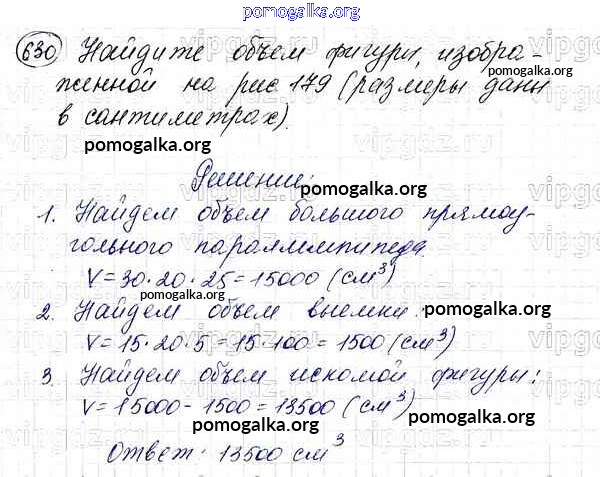 pomogalka.org
630 Найдите объем фигуры, изобра-
женной на рис 179 (размеры даны
pomogalka.org
в сантиметрах).
pomogalka.org
Решение:
pomogalka.org
1. Найдем объем большого прямоу-
гольного параллелепипеда.
V = 30·20·25 = 15000 (см³)
pomogalka.org
2. Найдем объем выемки:
pomogalka.org
V = 15·20·5 = 15·100 = 1500 (см³)
pomogalka.org
3. Найдем объем искомой фигуры:
V = 15000 - 1500 = 13500 (см³)
pomogalka.org
pomogalka.org
Ответ: 13500 см³